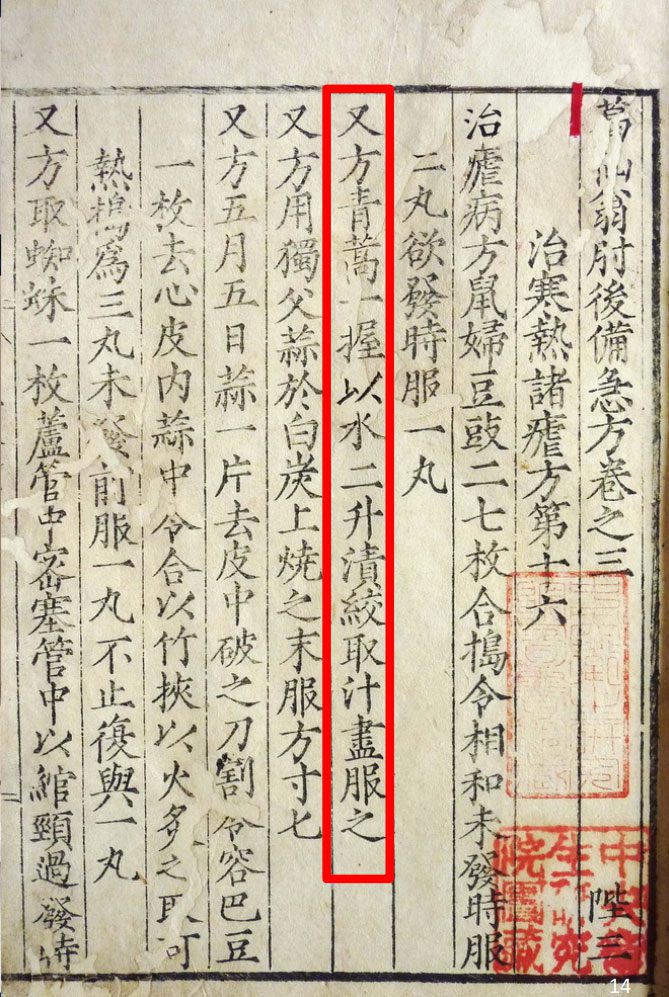 葛仙翁肘後備急方卷之三
陛三
治寒熱諸瘧方第十六
治瘧病方鼠婦豆豉二七枚合搗令相和未發時服
二丸欲發時服一丸
又方青蒿一握以水二升漬絞取汁盡服之
又方用獨父蒜於白炭上燒之末服方寸匕
又方五月五日蒜一片去皮中破之刀割令容巴豆
一枚去心皮內蒜中令合以竹挾以火炙之取可
熱搗爲三丸未發前服一丸不止復與一丸
又方取蜘蛛一枚蘆管中密塞管中以綰頸過發時
14